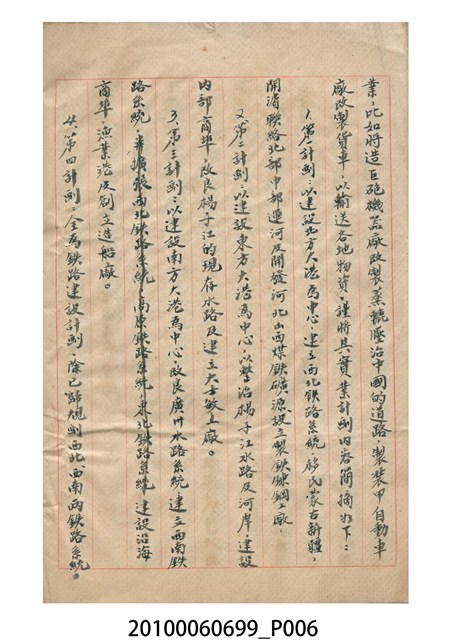 業，比如將造巨砲機器廠改製蒸轆壓治中國的道路，製裝甲自動車
廠改製貨車，以輸送各地物資，謹將其實業計劃內容簡摘如下：
1.第一計劃：以建設北方大港為中心，建立西北鐵路系統，移民蒙古新疆，
開濬聯絡北部中部運河及開發河北山西煤鐵礦源設立製鐵鍊鋼工廠，
2.第二計劃：以建設東方大港為中心，以整治楊子江水路及河岸，建設
內部商埠，改良楊子江的現存水路及建立大士敏土廠。
3.第三計劃：以建設南方大港為中心，改良廣州水路系統，建立西南鐵
路系統，并擴張西北鐵路系統，高原鐵路系統，東北鐵路系統，建設沿海
商埠，漁業港及創立造船廠。
4.第四計劃：全為鐵路建設計劃，除已歸規劃西北、西南兩鐵路系統，
20100060699_P006